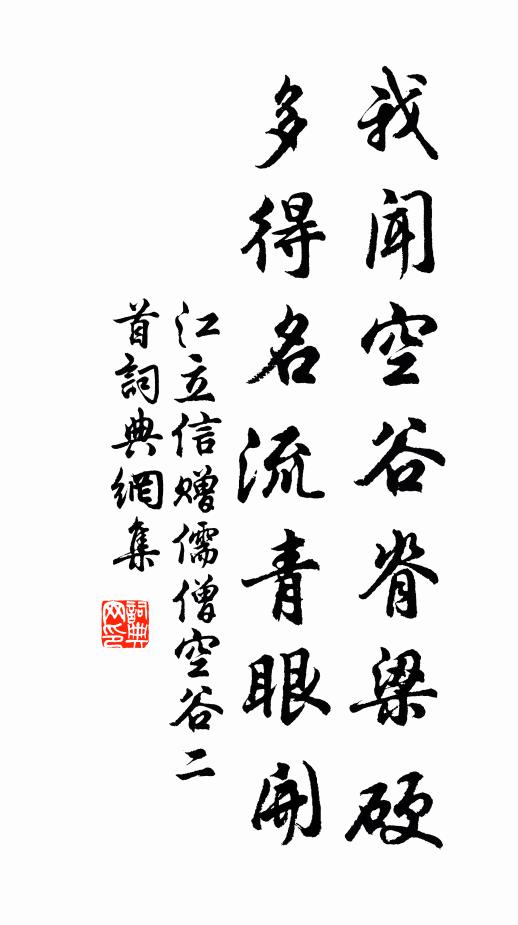 我聞空谷脊梁硬
多得名流青眼開
江立信贈儒僧空谷二
首詞典網集
詞典
网印